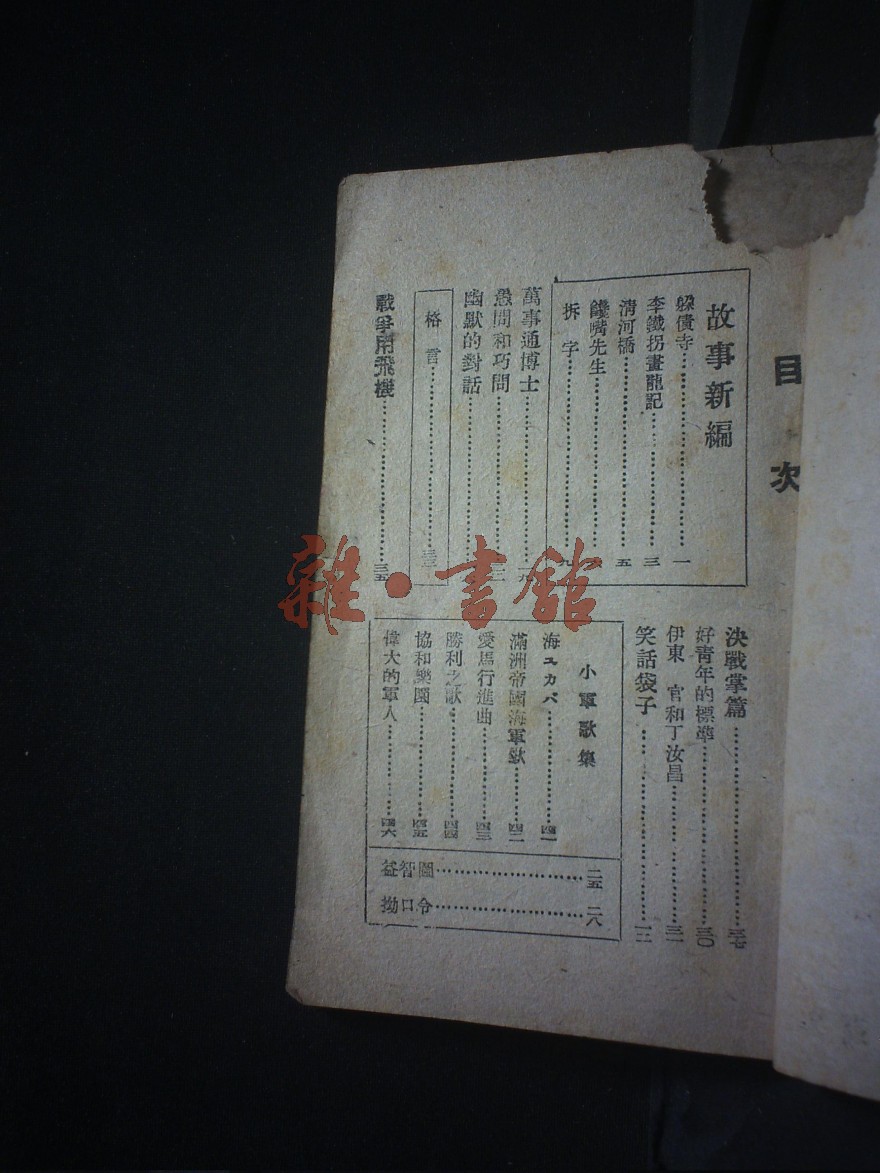 目次
故事新編
躲債寺……一
李鐵拐畫龍記……三
清河橋……五
饞嘴先生……六
拆字……九
萬事通博士
愚問和巧問
幽默的對話
格言
戰爭用飛機……三五
決戰掌篇……三七
好青年的標準……三〇
伊東 官和丁汝昌……三一
笑話袋子……一二
小軍歌集
海ユカバ……四一
滿洲帝國海軍歌……四二
愛馬行進曲……四三
勝利之歌……四四
協和樂園……四五
偉大的軍人……四六
益智圖……二五
拗口令……二八
雜·書館